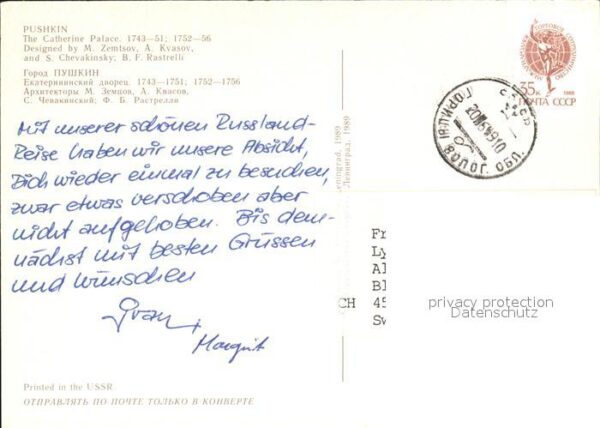 PUSHKIN
The Catherine Palace. 1743—51; 1752—56
Designed by M. Zemtsov, A. Kvasov,
and S. Chevakinsky; B. F. Rastrelli
Город ПУШКИН
Екатерининский дворец. 1743—1751; 1752—1756
Архитекторы М. Земцов, А. Квасов,
С. Чевакинский; Ф. Б. Растрелли
Mit unserer schönen Russland-
Reise haben wir unsere Absicht,
Dich wieder einmal zu besuchen,
zwar etwas verschoben aber
nicht aufgehoben. Bis dem-
nächst mit besten Grüssen
und Wünschen
Margrit
Printed in the USSR.
ОТПРАВЛЯТЬ ПО ПОЧТЕ ТОЛЬКО В КОНВЕРТЕ
Leningrad, 1989
Ленинград, 1989
35к
1988
ПОЧТА СССР
СССР
ВОЛОГ. ОБЛ.
Fr
Ly
Al
Bl
CH 45
Sw
privacy protection
Datenschutz